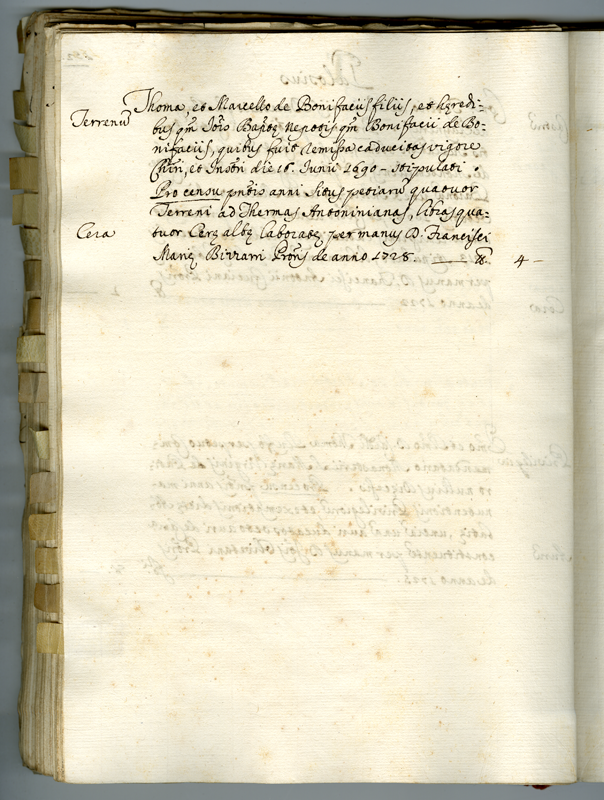 Thoma, et Marcello de Bonifacijs filijs, et hęredi-
Terrenũ
bus qm̃ Joīs Bapťę Nepotis qm̃ Bonifacii de Bo-
nifacijs, quibus fuit remissa caducitas vigore
et die 16. Junii 1690 - stipulati
Pro censu pñtis anni situs petiarũ quatuor
Terreni ad Thermas Antoninianas, libras qua-
Cera
tuor Cerę albę laboratę per manus D. Francisci
Marię Bizzarri de anno 1728. ℔ 4 -